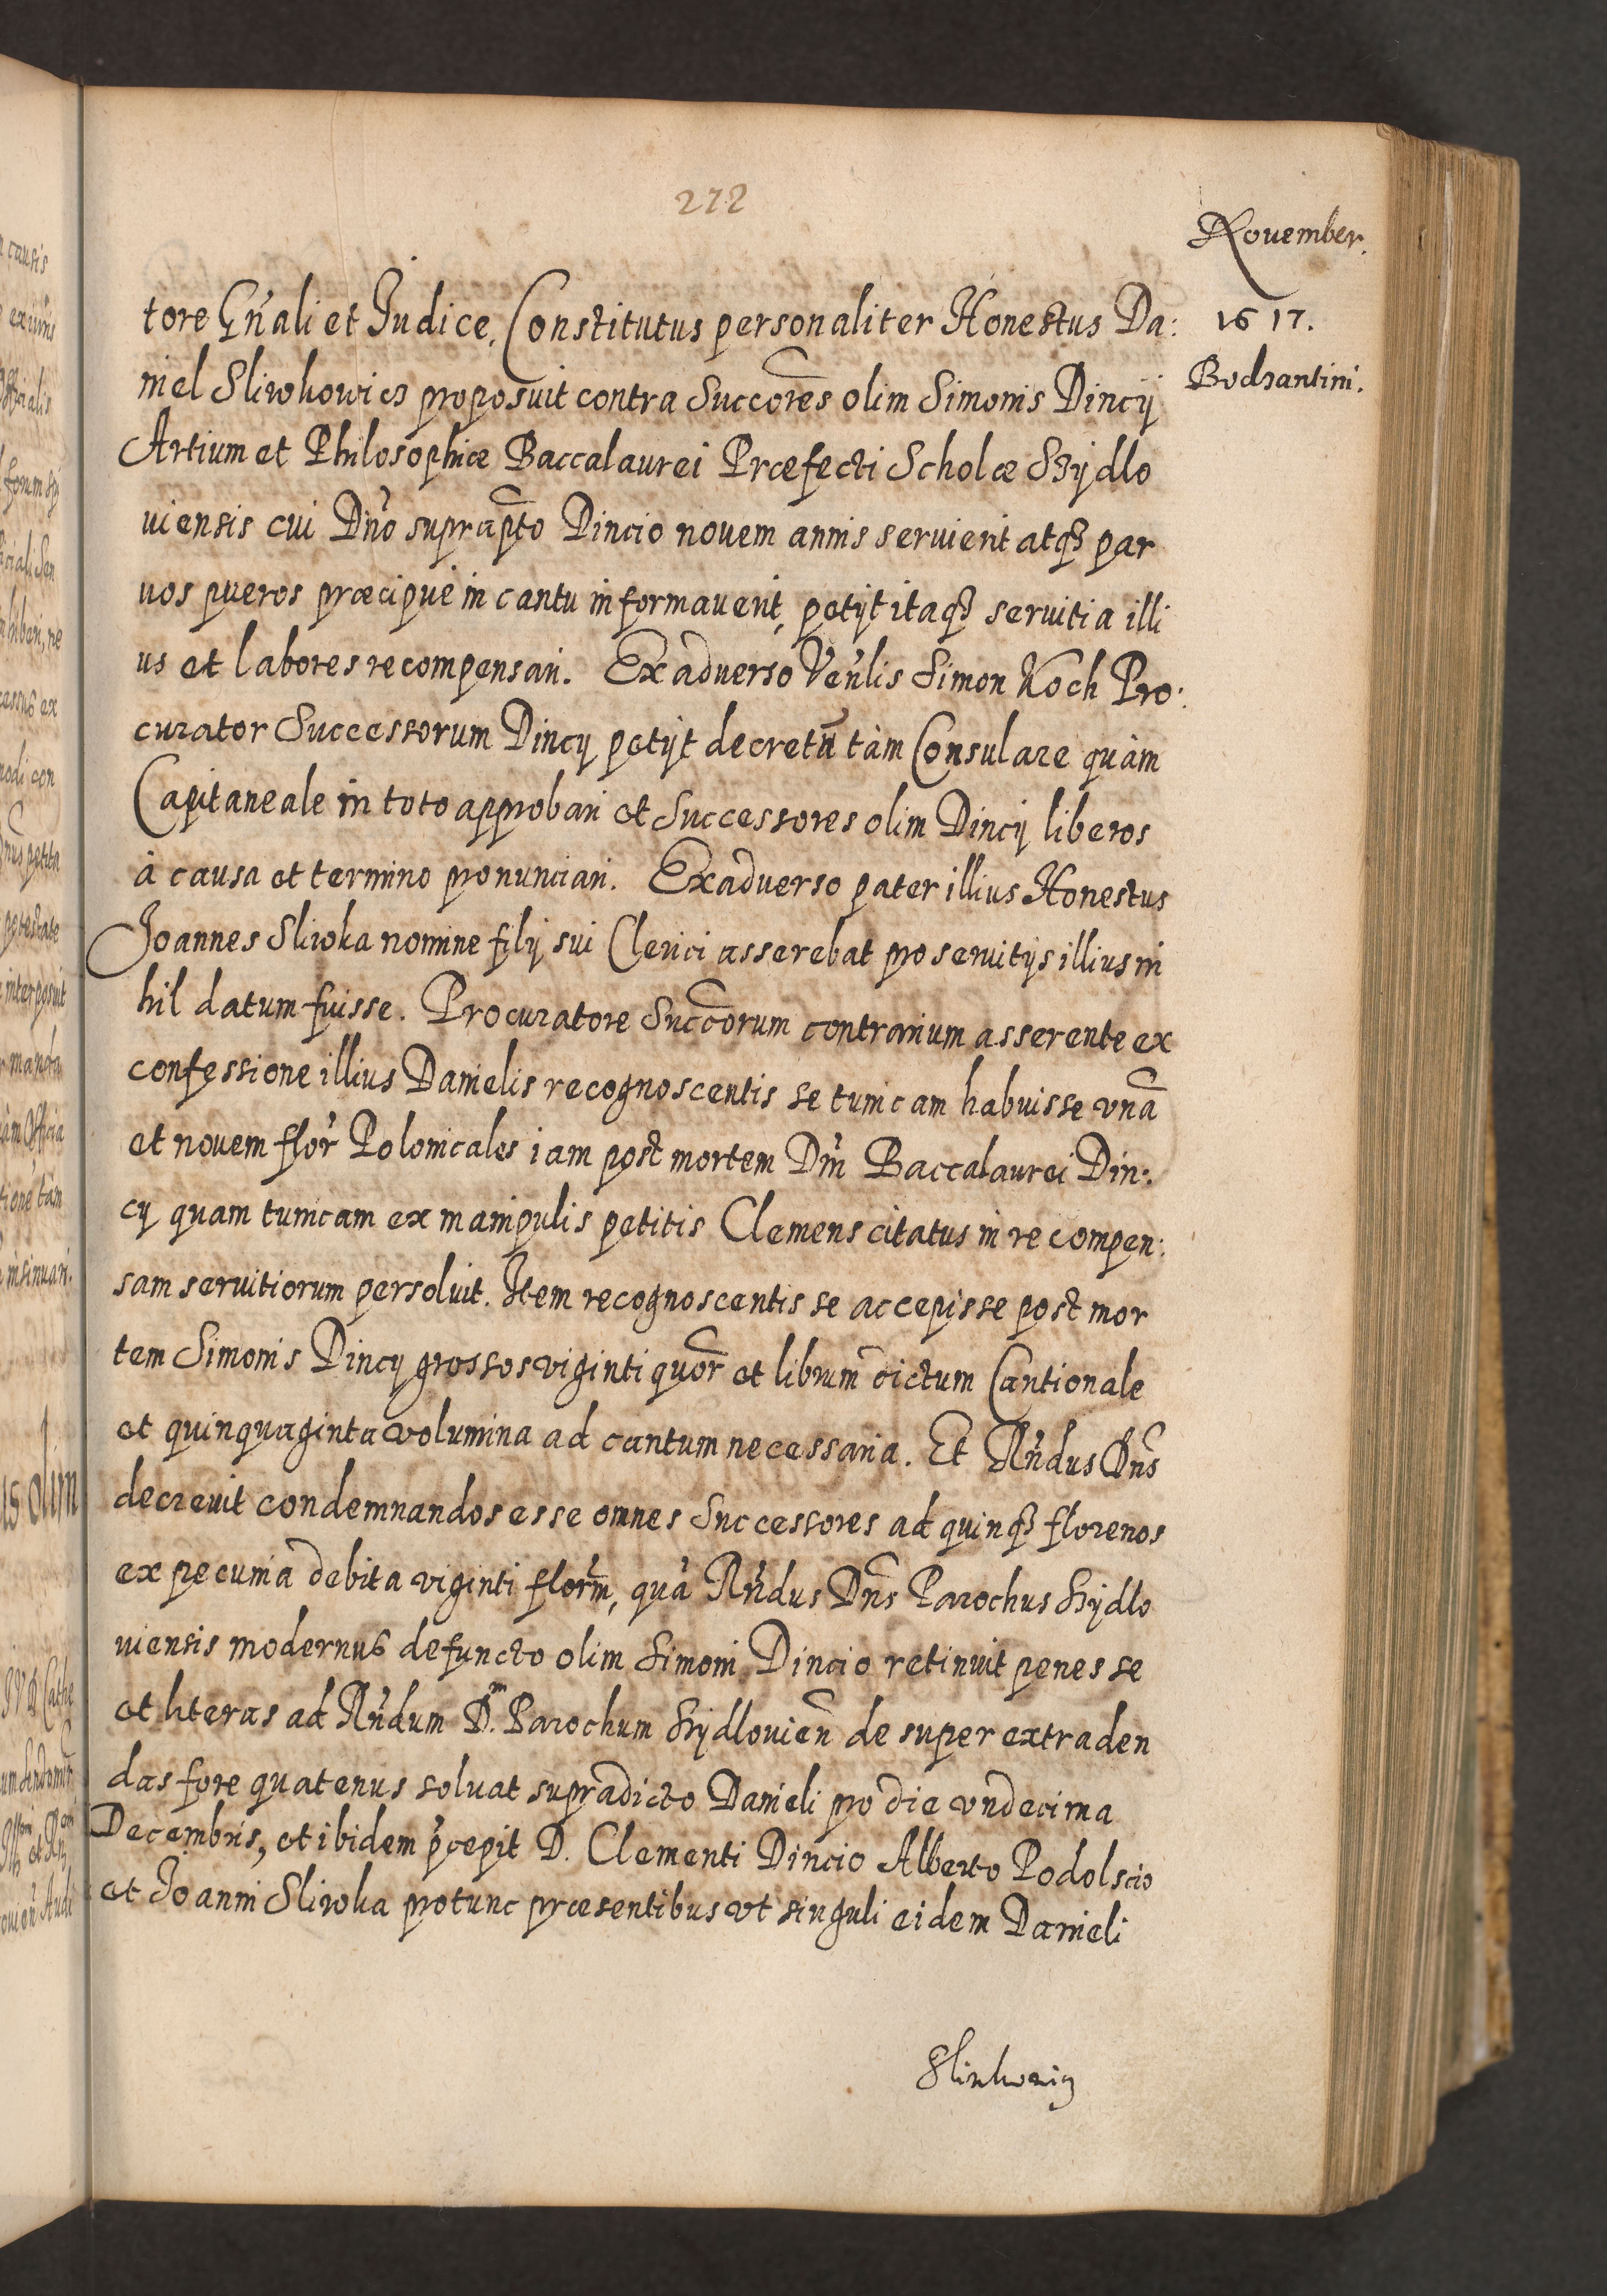 272
Nouember.
1617.
Bodzantini.
tore Gn̄ali et Judice. Constitutus personaliter Honestus Da:
niel Sliwkowicz proposuit contra Succōres olim Simonis Dincij
Artium et Philosophiæ Baccalaurei Præfecti Scholæ Szÿdlo
uiensis cui Dn̄o suprap̄to Dincio nouem annis seruierit atqȝ par
uos pueros præcipuè in cantu informauerit, petÿt itaqȝ seruitia illi
us et labores recompensari. Ex aduerso Ven̄lis Simon Koch Pro:
curator Successorum Dincij petÿt decretū tàm Consulare quàm
Capitaneale in toto approbari et Successores olim Dincij liberos
à causa et termino pronunciari. Ex aduerso pater illius Honestus
Joannes Sliwka nomine filij sui Clerici asserebat pro seruitijs illius ni
hil datum fuisse. Procuratore Succōrum contrarium asserente ex
confessione illius Danielis recognoscentis se tunicam habuisse vnā
et nouem flor̄ Polonicales iam post mortem Dn̄i Baccalaurei Din:
cij quam tunicam ex manipulis petitis Clemens citatus in recompen:
sam seruitiorum persoluit. Item recognoscentis se accepisse post mor
tem Simonis Dincij grossos viginti quōr et librum dictum Cantionale
et quinquaginta volumina ad cantum necessaria. Et Rn̄dus Dn̄s
decreuit condemnandos esse omnes Successores ad quinqȝ florenos
ex pecunia debita viginti florm̄, quā Rn̄dus Dn̄s Parochus Szÿdlo
uiensis modernus defuncto olim Simoni Dincio retinuit penes se
et literas ad Rn̄dum D. Parochum Szÿdlouien̄ de super extraden
das fore quatenus soluat supradicto Danieli pro die vndecima
Decembris, et ibidem p̄cepit D. Clementi Dincio Alberto Podolscio
et Joanni Sliwka protunc præsentibus vt singuli eidem Danieli